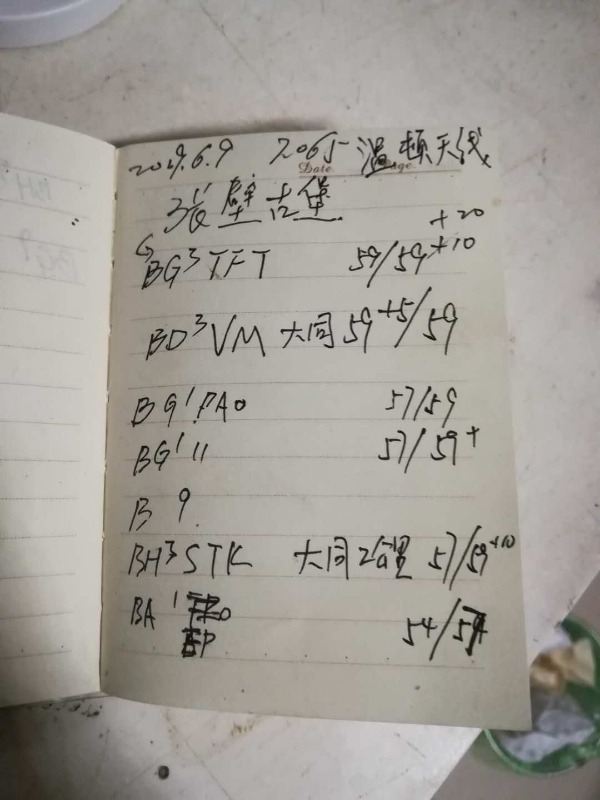 2019.6.9 7.065 温顿天线
Date Page
张壁古堡 +20
BG3TFT 59/59+10
BD3VM 大同 59+5/59
BG1PAO 57/59
BG1 57/59+
B 9
BH3STK 大同 57/59+10
BA1 54/